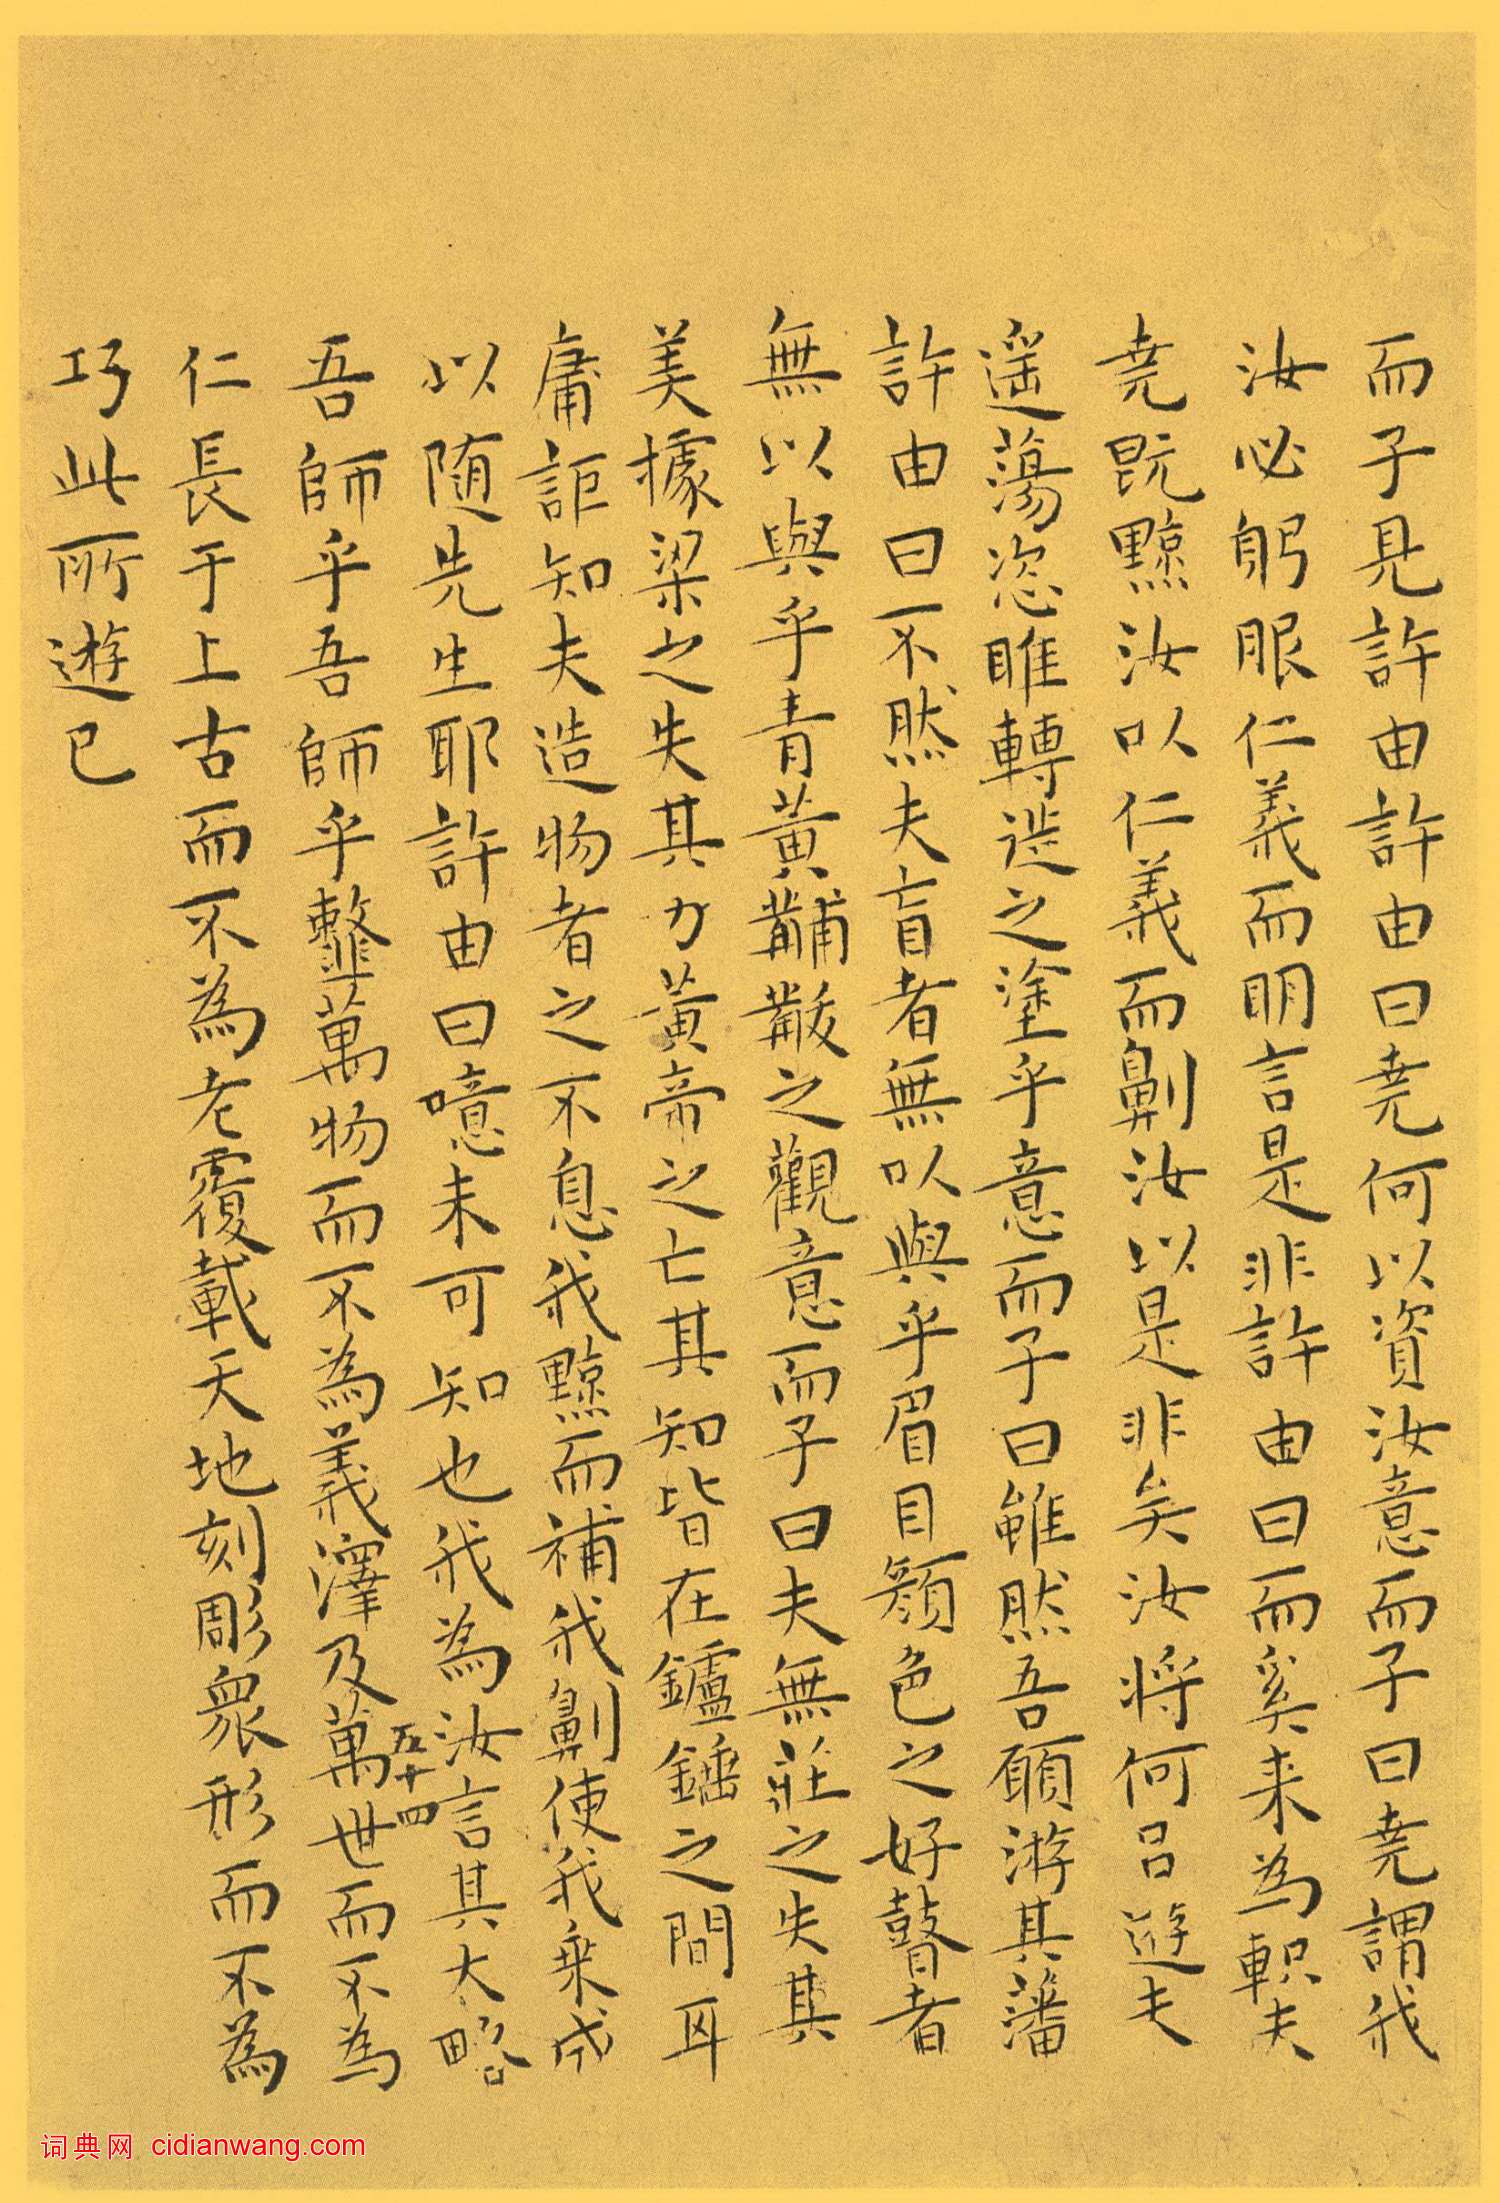 而子見許由許由曰堯何以資汝意而子曰堯謂我
汝必躬服仁義而明言是非許由曰而奚来為軹夫
堯既黥汝以仁義而劓汝以是非矣汝将何㠯遊夫
遥蕩恣睢轉徙之塗乎意而子曰雖然吾願游其藩
許由曰不然夫盲者無以與乎眉目顏色之好瞽者
無以與乎青黃黼黻之觀意而子曰夫無莊之失其
美據梁之失其力黃帝之亡其知皆在鑪錘之間耳
庸詎知夫造物者之不息我黥而補我劓使我乗成
以随先生耶許由曰噫未可知也我為汝言其大略
吾師乎吾師乎䪠萬物而不為義澤及萬世而不為
五十四
仁長于上古而不為老覆載天地刻彫衆形而不為
巧此所遊已
词典网 cidianwang.com